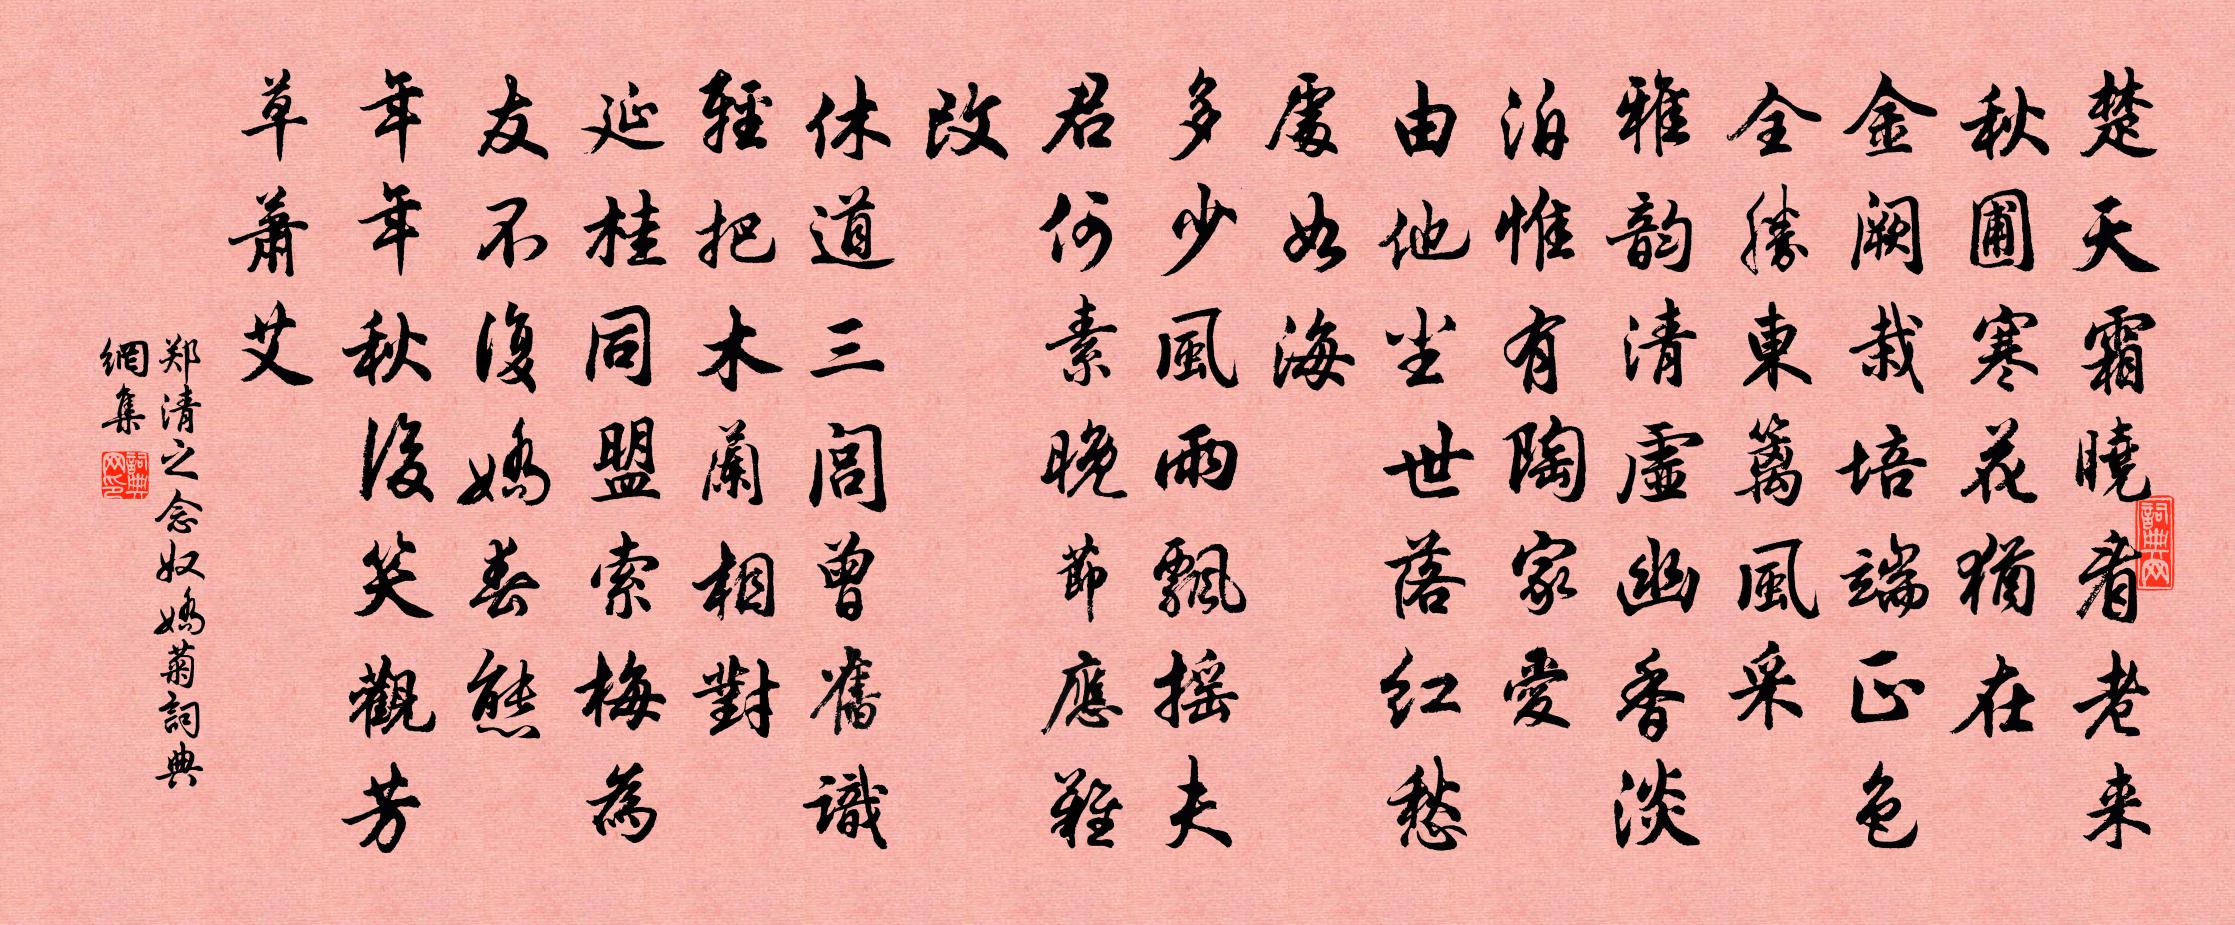 楚天霜曉看老来
秋圃寒花猶在
金阙栽培端正色
全勝東籬風采
雅韵清虚幽香淡
泊惟有陶家愛
由他尘世落红愁
處如海
多少風雨飄摇夫
君何素晚節應難
改
休道三闾曾舊識
輕把木蘭相對
延桂同盟索梅為
友不復嬌春態
年年秋後笑觀芳
草蕭艾
郑清之念奴嬌菊詞典
網集
詞典网
詞典网印